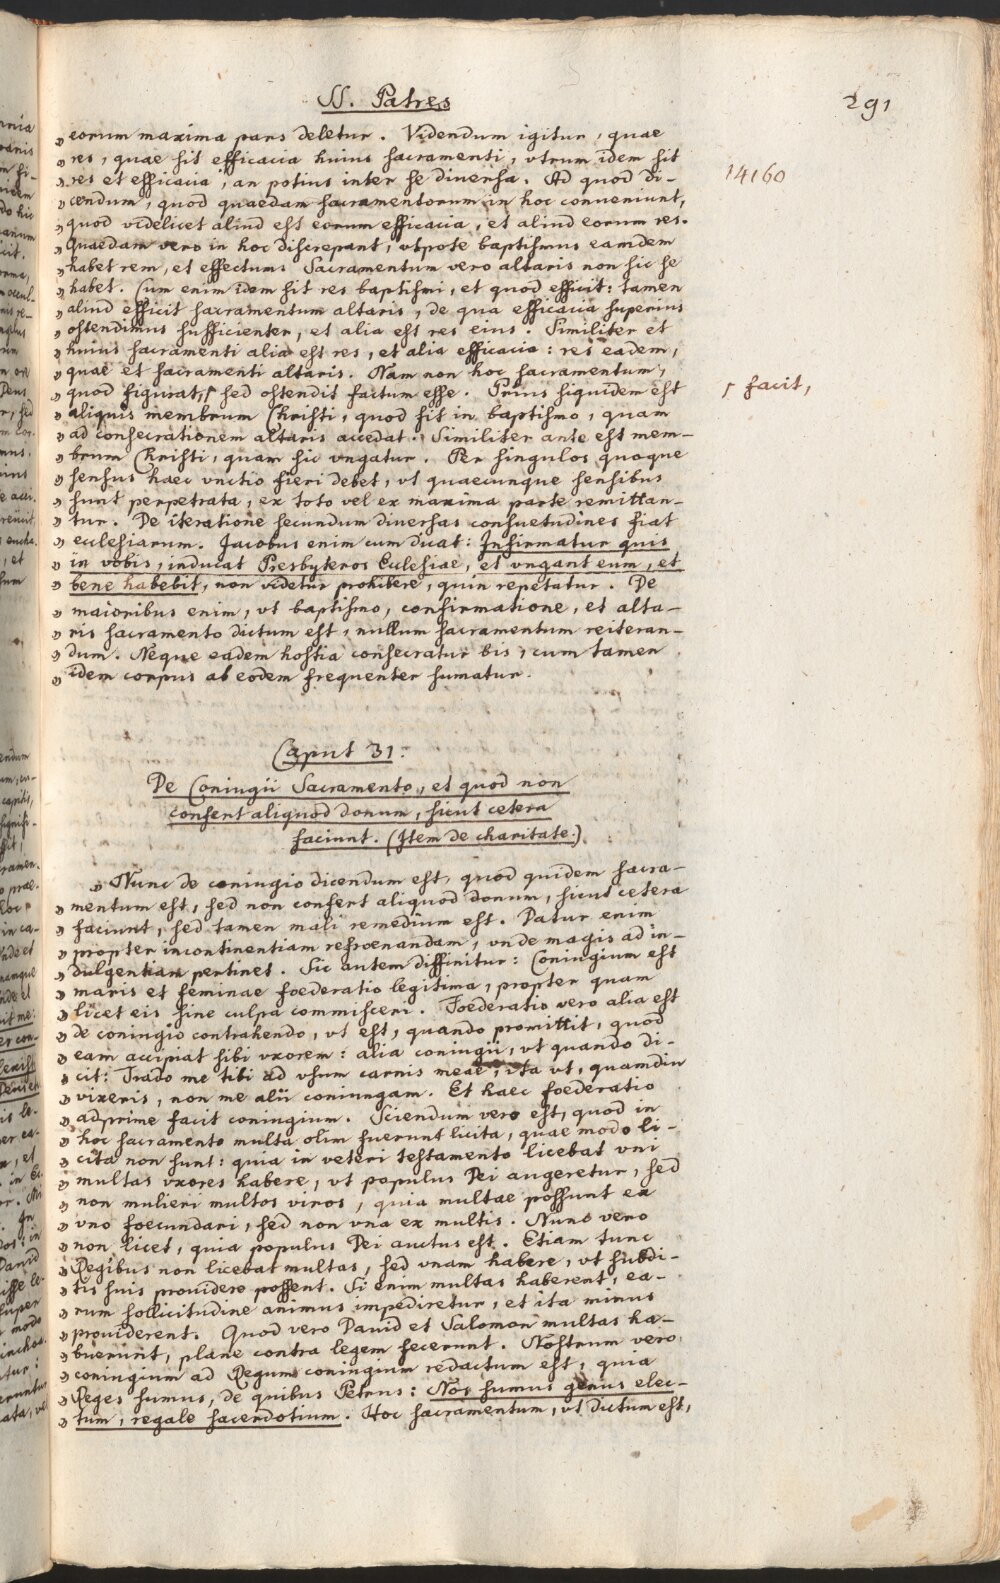 SS. Patres
291
„ eorum maxima pars deletur. Videndum igitur, quae
„ res, quae sit efficacia huius sacramenti, vtrum idem sit
14160
„ res et efficacia, an potius inter se diuersa. Ad quod di-
„ cendum, quod quaedam sacramentorum in hoc conueniunt,
„ quod videlicet aliud est eorum efficacia, et aliud eorum res.
„ Quaedam vero in hoc discrepant, vtpote baptismus eamdem
„ habet rem, et effectum: Sacramentum vero altaris non sic se
„ habet. Cum enim idem sit res baptismi, et quod efficit: tamen
„ aliud efficit sacramentum altaris, de qua efficacia superius
„ ostendimus sufficienter, et alia est res eius. Similiter et
„ huius sacramenti alia est res, et alia efficacia: res eadem,
„ quae et sacramenti altaris. Nam non hoc sacramentum,
„ quod figurat,ſ sed ostendit factum esse. Prius siquidem est
ſ facit,
„ aliquis membrum Christi, quod fit in baptismo, quam
„ ad consecrationem altaris accedat. Similiter ante est mem-
„ brum Christi, quam sic vngatur. Per singulos quoque
„ sensus haec vnctio fieri debet, vt quaecunque sensibus
„ sunt perpetrata, ex toto vel ex maxima parte remittan-
„ tur. De iteratione secundum diuersas consuetudines fiat
„ ecclesiarum. Jacobus enim cum dicat: Infirmatur quis
„ in vobis, inducat Presbyteros Ecclesiae, et vngant eum, et
„ bene habebit, non videtur prohibere, quin repetatur. De
„ maioribus enim, vt baptismo, confirmatione, et alta-
„ ris sacramento dictum est, nullum sacramentum reiteran-
„ dum. Neque eadem hostia consecratur bis, cum tamen
„ idem corpus ab eodem frequenter sumatur.
Caput 31.
De Coniugii Sacramento, et quod non
confert aliquod donum, sicut cetera
faciunt. (Item de charitate.)
„ Nunc de coniugio dicendum est, quod quidem sacra-
„ mentum est, sed non confert aliquod donum, sicut cetera
„ faciunt, sed tamen mali remedium est. Datur enim
„ propter incontinentiam refroenandam, vnde magis ad in-
„ dulgentiam pertinet. Sic autem diffinitur: Coniugium est
„ maris et feminae foederatio legitima, propter quam
„ licet eis sine culpa commisceri. Foederatio vero alia est
„ de coniugio contrahendo, vt est, quando promittit, quod
„ eam accipiat sibi vxorem: alia coniugii, vt quando di-
„ cit: Trado me tibi ad vsum carnis meae, ita vt, quamdiu
„ vixeris, non me alii coniungam. Et haec foederatio
„ adprime facit coniugium. Sciendum vero est, quod in
„ hoc sacramento multa olim fuerunt licita, quae modo li-
„ cita non sunt: quia in veteri testamento licebat vni
„ multas vxores habere, vt populus Dei augeretur, sed
„ non mulieri multos viros, quia multae possunt ex
„ vno foecundari, sed non vna ex multis. Nunc vero
„ non licet, quia populus Dei auctus est. Etiam tunc
„ Regibus non licebat multas, sed vnam habere, vt subdi-
„ tis suis prouidere possent. Si enim multas haberent, ea-
„ rum sollicitudine animus impediretur, et ita minus
„ prouiderent. Quod vero Dauid et Salomon multas ha-
„ buerunt, plane contra legem fecerunt. Nostrum vero
„ coniugium ad Regum coniugium redactum est, quia
„ Reges sumus, de quibus Petrus: Nos sumus genus elec-
„ tum, regale sacerdotium. Hoc sacramentum, vt dictum est,